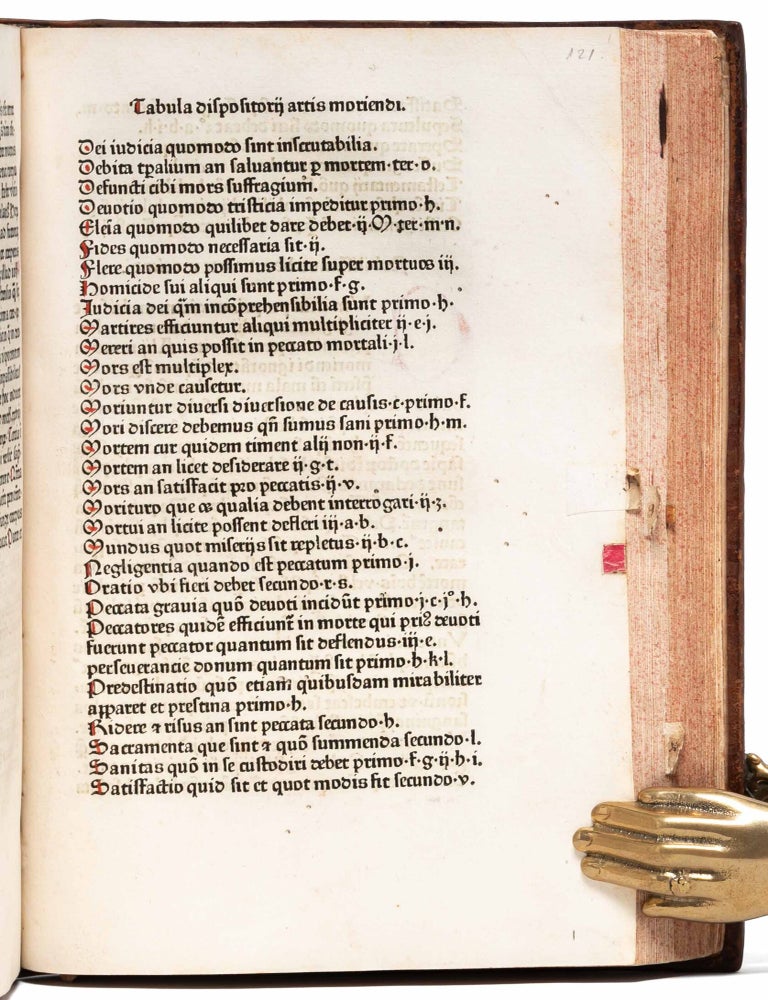 121
Tabula dispositorij artis moriendi.
Dei iudicia quomodo sint inscrutabilia.
Debita tp̄alium an saluantur ꝑ mortem·ter·o.
Defuncti cibi mors suffragium.
Deuotio quomodo tristicia impeditur primo·h.
Eleīa quomodo quilibet dare debet·ij·M·ter·m·n.
Fides quomodo necessaria sit·ij.
Flere quomodo possimus licite super mortuos iij.
Homicide sui aliqui sunt primo·f·g.
Iudicia dei qm̄ incōprehensibilia sunt primo·h·
Martires efficiuntur aliqui multipliciter ij·e·j.
Mereri an quis possit in peccato mortali·j·l.
Mors est multiplex.
Mors vnde causetur.
Moriuntur diuersi diuersione de causis·c·primo·f.
Mori discere debemus qn̄ sumus sani primo·h·m.
Mortem cur quidem timent alij non·ij·f.
Mortem an licet desiderare ij·g·t.
Mors an satisfacit pro peccatis·ij·v.
Morituro que et qualia debent interrogari·ij·z.
Mortui an licite possent defleri iij·a·b.
Mundus quot miserijs sit repletus·ij·b·c.
Negligentia quando est peccatum primo·j.
Oratio vbi fieri debet secundo·r·s.
Peccata grauia quō deuoti incidūt primo·j·c·j°·h.
Peccatores quidē efficiunt᷑ in morte qui priꝰ deuoti
fuerunt peccator quantum sit deflendus·iij·e.
perseuerancie donum quantum sit primo·h·k·l.
Predestinatio quō etiam quibusdam mirabiliter
apparet et prestina primo·h.
Ridere ⁊ risus an sint peccata secundo·h.
Sacramenta que sint ⁊ quō summenda secundo·l.
Sanitas quō in se custodiri debet primo·f·g·ij·h·i.
Satisfactio quid sit et quot modis fit secundo·v.